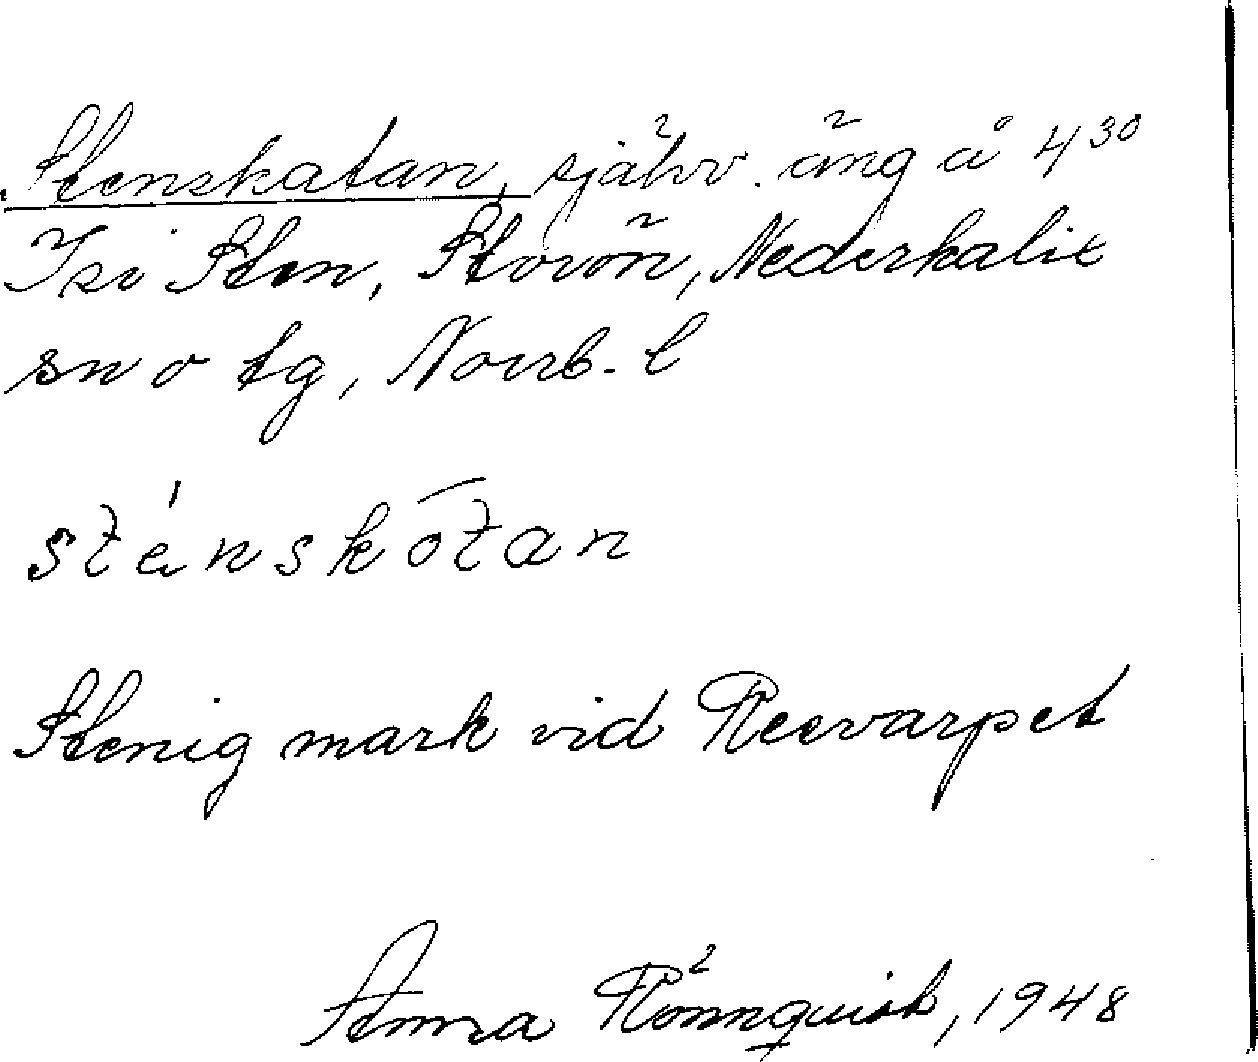 Stenskatan, själv. äng å 4³⁰
Isi Sten, Storön, Nederkalix
sn o tg, Norrb. l
sténskōtan
Stenig mark vid Reevarpet
Anna Rönnquist, 1948